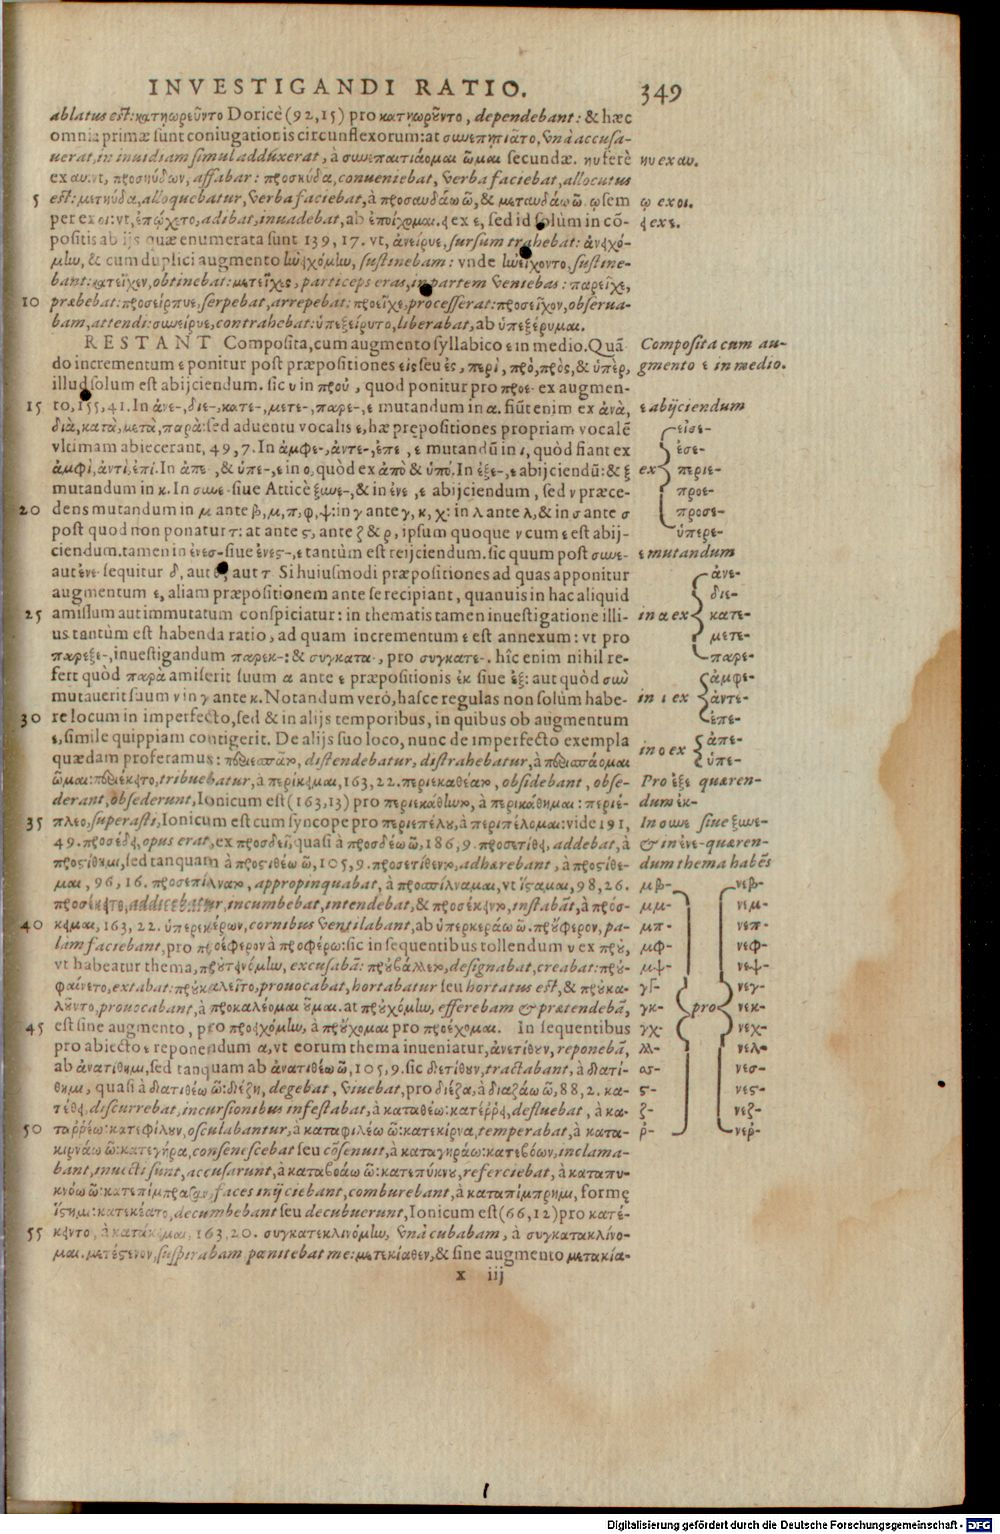 INVESTIGANDI RATIO. 349
ablatus est: κατηωρεῦντο Doricè (92,15) pro κατηωροῦντο, dependebant: & hæc
omnia primæ sunt coniugationis circunflexorum: at συνεπῃτιᾶτο, Vnà accusa-
uerat, in inuidiam simul adduxerat, à συνεπαιτιάομαι ῶμαι secundæ. ηυ ferè
ex αυ. vt, προσηύδων, affabar: προσηύδα, conueniebat, Verba faciebat, allocutus
5 est: μετηύδα, alloquebatur, Verba faciebat, à προσαυδάω ῶ, & μεταυδάω ῶ. ῳ sem
per ex οι: vt, ἐπῴχετο, adibat, inuadebat, ab ἐποίχομαι. ει ex ε, sed id solùm in cō-
positis ab ijs quæ enumerata sunt 139, 17. vt, ἀνείρυε, sursum trahebat: ἀνειχό-
μην, & cum duplici augmento ἠνειχόμην, sustinebam: vnde ἠνείχοντο, sustine-
bant: κατεῖχεν, obtinebat: μετεῖχες, particeps eras, in partem Veniebas: παρεῖχε,
10 præbebat: προσεῖρπυε, serpebat, arrepebat: προεῖχε, processerat: προσεῖχον, obserua-
bam, attendi: συνείρυε, contrahebat: ὑπεξείρυτο, liberabat, ab ὑπεξέρυμαι.
RESTANT Composita, cum augmento syllabico ε in medio. Quā-
do incrementum ε ponitur post præpositiones εἰς seu ἐς, περὶ, πρὸ, πρὸς, & ὑπὲρ,
illud solum est abijciendum. sic υ in προὐ, quod ponitur pro προε- ex augmen-
15 to, 155, 41. In ἀνε-, διε-, κατε-, μετε-, παρε-, ε mutandum in α. fiūt enim ex ἀνὰ,
διὰ, κατὰ, μετὰ, παρὰ: sed aduentu vocalis ε, hæ prępositiones propriam vocalē
vltimam abiecerant, 49, 7. In ἀμφε-, ἀντε-, ἐπε-, ε mutandū in ι, quòd fiant ex
ἀμφὶ, ἀντὶ, ἐπὶ. In ἀπε-, & ὑπε-, ε in ο, quòd ex ἀπὸ & ὑπό. In ἐξε-, ε abijciendū: & ξ
mutandum in κ. In συνε- siue Atticè ξυνε-, & in ἐνε-, ε abijciendum, sed ν præce-
20 dens mutandum in μ ante β, μ, π, φ, ψ: in γ ante γ, κ, χ: in λ ante λ, & in σ ante σ
post quod non ponatur τ: at ante ς, ante ζ & ρ, ipsum quoque ν cum ε est abij-
ciendum. tamen in ἐνεσ- siue ἐνες-, ε tantùm est reijciendum. sic quum post συνε-
aut ἐνε- sequitur δ, aut θ, aut τ. Si huiusmodi præpositiones ad quas apponitur
augmentum ε, aliam præpositionem ante se recipiant, quanuis in hac aliquid
25 amissum aut immutatum conspiciatur: in thematis tamen inuestigatione illi-
us tantùm est habenda ratio, ad quam incrementum ε est annexum: vt pro
παρεξε-, inuestigandum παρεκ-: & συγκατα-, pro συγκατε-. hîc enim nihil re-
fert quòd παρὰ amiserit suum α ante ε præpositionis ἐκ siue ἐξ: aut quòd σὺν
mutauerit suum ν in γ ante κ. Notandum verò, hasce regulas non solùm habe-
30 re locum in imperfecto, sed & in alijs temporibus, in quibus ob augmentum
ε, simile quippiam contigerit. De alijs suo loco, nunc de imperfecto exempla
quædam proferamus: περιεσπᾶτο, distendebatur, distrahebatur, à περισπάομαι
ῶμαι: περιέκειτο, tribuebatur, à περίκειμαι, 163, 22. περιεκαθέατο, obsidebant, obse-
derant, obsederunt, Ionicum est (163, 13) pro περιεκάθηντο, à περικάθημαι: περιέ-
35 πλεο, superasti, Ionicum est cum syncope pro περιεπέλου, à περιπέλομαι: vide 191,
49. προσέδει, opus erat, ex προσδεῖ, quasi à προσδέω ῶ, 186, 9. προσετίθει, addebat, à
προςίθημι, sed tanquam à προςιθέω ῶ, 105, 9. προσετίθεντο, adhærebant, à προςίθε-
μαι, 96, 16. προσεπίλνατο, appropinquabat, à προσπίλναμαι, vt ἵσαμαι, 98, 26.
προσέκειτο, addicebatur, incumbebat, intendebat, & προσέκειντο, instabāt, à πρόσ-
40 κειμαι, 163, 22. ὑπερεκέρων, cornibus Ventilabant, ab ὑπερκεράω ῶ. προὔφερον, pa-
làm faciebant, pro προέφερον à προφέρω: sic in sequentibus tollendum υ ex πρου,
vt habeatur thema, προὐτεινόμην, excusabā: προὐβάλλετο, designabat, creabat: προὐ-
φαίνετο, extabat: προὐκαλεῖτο, prouocabat, hortabatur seu hortatus est, & προὐκα-
λοῦντο, prouocabant, à προκαλέομαι οῦμαι. at προὐχόμην, efferebam & prætendebā,
45 est sine augmento, pro προειχόμην, à προὔχομαι pro προέχομαι. In sequentibus
pro abiecto ε reponendum α, vt eorum thema inueniatur, ἀνετίθουν, reponebā,
ab ἀνατίθημι, sed tanquam ab ἀνατιθέω ῶ, 105, 9. sic διετίθουν, tractabant, à διατί-
θημι, quasi à διατιθέω ῶ: διέζη, degebat, Viuebat, pro διέζα, à διαζάω ῶ, 88, 2. κα-
τέθει, discurrebat, incursionibus infestabat, à καταθέω: κατέῤῥει, defluebat, à κα-
50 ταῤῥέω: κατεφίλουν, osculabantur, à καταφιλέω ῶ: κατεκίρνα, temperabat, à κατα-
κιρνάω ῶ: κατεγήρα, consenescebat seu cōsenuit, à καταγηράω: κατεβόων, inclama-
bant, inuecti sunt, accusarunt, à καταβοάω ῶ: κατεπύκνου, referciebat, à καταπυ-
κνόω ῶ: κατεπίμπρασαν, faces inijciebant, comburebant, à καταπίμπρημι, formę
ἵσημι: κατεκέατο, decumbebant seu decubuerunt, Ionicum est (66, 12) pro κατέ-
55 κειντο, à κατάκειμαι, 163, 20. συγκατεκλινόμην, Vnà cubabam, à συγκατακλίνο-
μαι. μετέςενον, suspirabam pœnitebat me: μετεκίαθεν, & sine augmento μετακία-
x iij
ηυ ex αυ.
ῳ ex οι.
ει ex ε.
Composita cum au-
gmento ε in medio.
ε abijciendum
ex
εἰσε-
ἐσε-
περιε-
προε-
προσε-
ὑπερε-
ε mutandum
in α ex
ἀνε-
διε-
κατε-
μετε-
παρε-
in ι ex
ἀμφε-
ἀντε-
ἐπε-
in ο ex
ἀπε-
ὑπε-
Pro ἐξε quæren-
dum ἐκ-
In συνε siue ξυνε-
& in ἐνε- quæren-
dum thema habēs
μβ- νεβ-
μμ- νεμ-
μπ- νεπ-
μφ- νεφ-
μψ- νεψ-
γγ- νεγ-
γκ- pro νεκ-
γχ- νεχ-
λλ- νελ-
σσ- νεσ-
ς- νες-
ζ- νεζ-
ῥ- νερ-
1
Digitalisierung gefördert durch die Deutsche Forschungsgemeinschaft - DFG